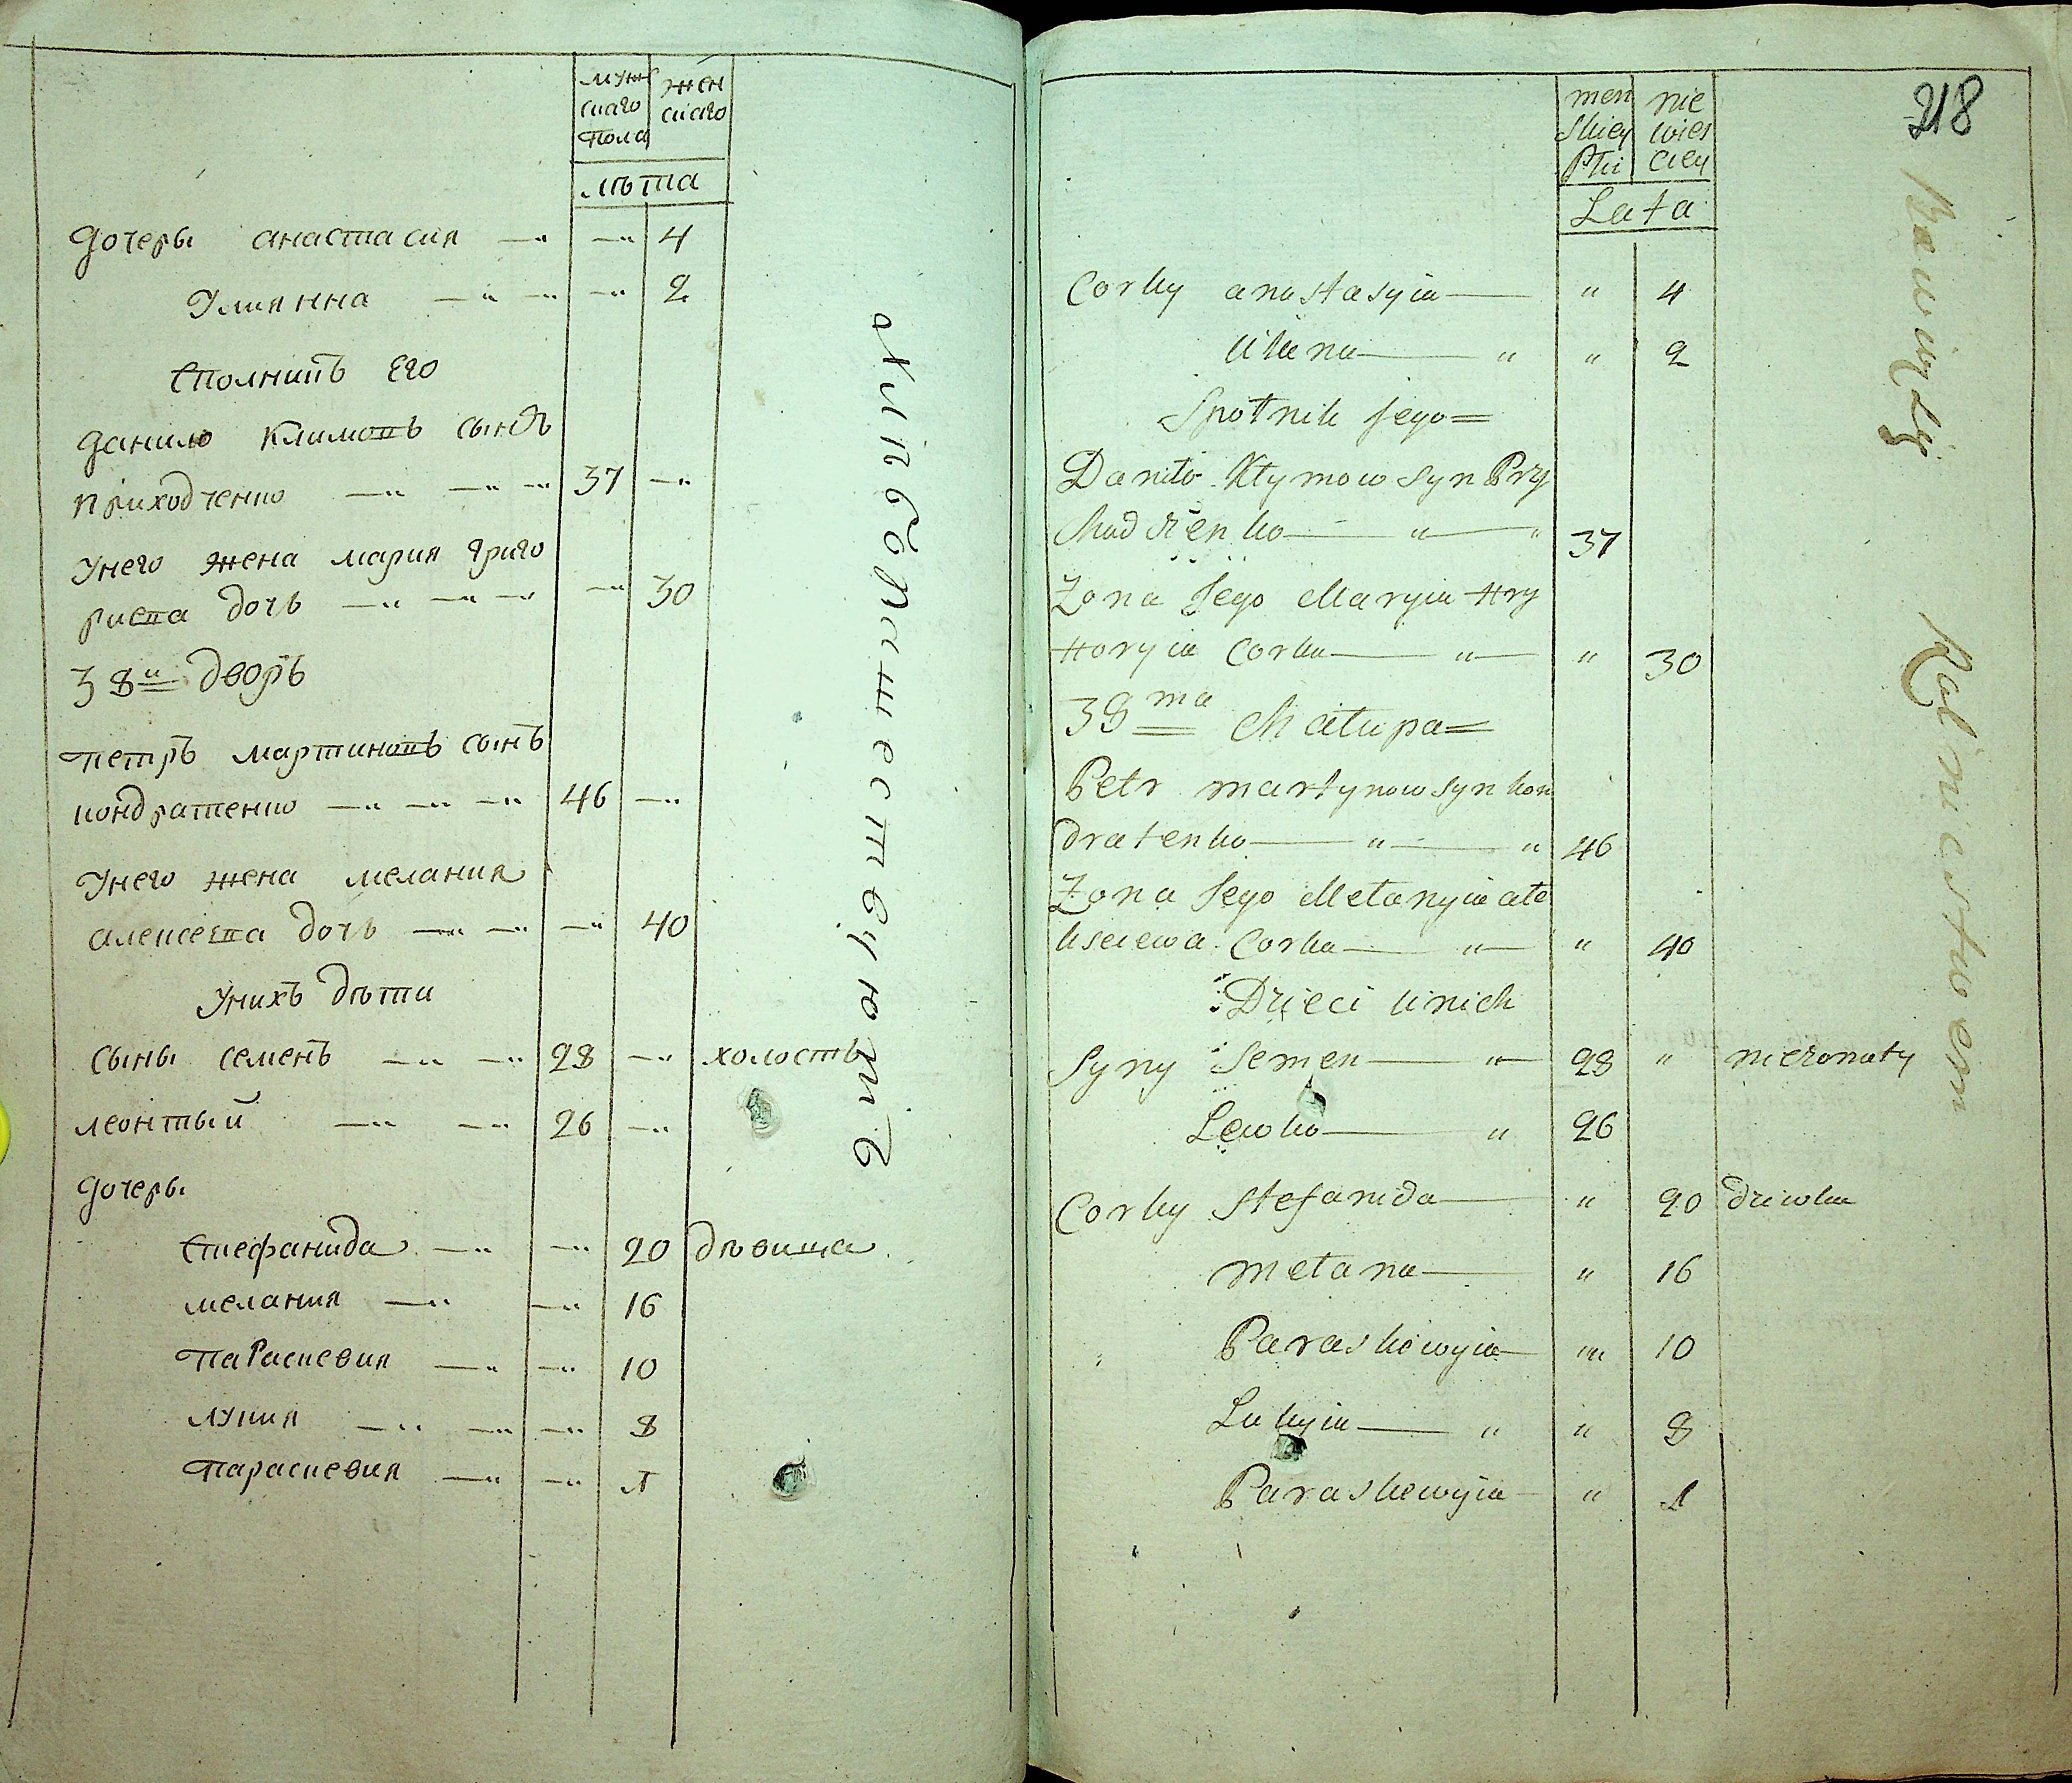 муж
скаго
пола
жен
скаго
лѣта
дочеры анастасия — 4
Улиянна — 2
Сполникъ Его
данило климовъ сынъ
приходченко — 37
Унего жена мария григо
риева дочь — 30
38й дворъ
петръ мартиновъ сынъ
кондратенко — 46
Унего жена мелания
алексеева дочь — 40
Унихъ дѣти
сыны семенъ — 28 — холостъ
леонтый — 26
дочеры
Стефанида — 20 дѣвица
мелания — 16
Параскевия — 10
лукия — 8
параскевия — 1
218
men
skiey
Płci
nie
wies
ciey
Lata
Corky anastasyia — " 4
Ulana — " " 2
Społnik Jego =
Daniło Kłymow syn Pry
chodzienko — " — " 37
Żona Jego Maryia Hry
Horyia Corka — " — " 30
38ma Chałupa =
Petr martynow syn kon
dratenko — " — " 46
Żona Jego Mełanyia ałe
kseiewa Corka — " — " 40
Dzieci Unich
Syny Semen — " — 28 " niezonaty
Lewko — " 26
Corky Stefanida — " 20 dziwka
mełana — " 16
Paraskewyia — " 10
Lukyia — " " 8
Paraskewyia — " 1